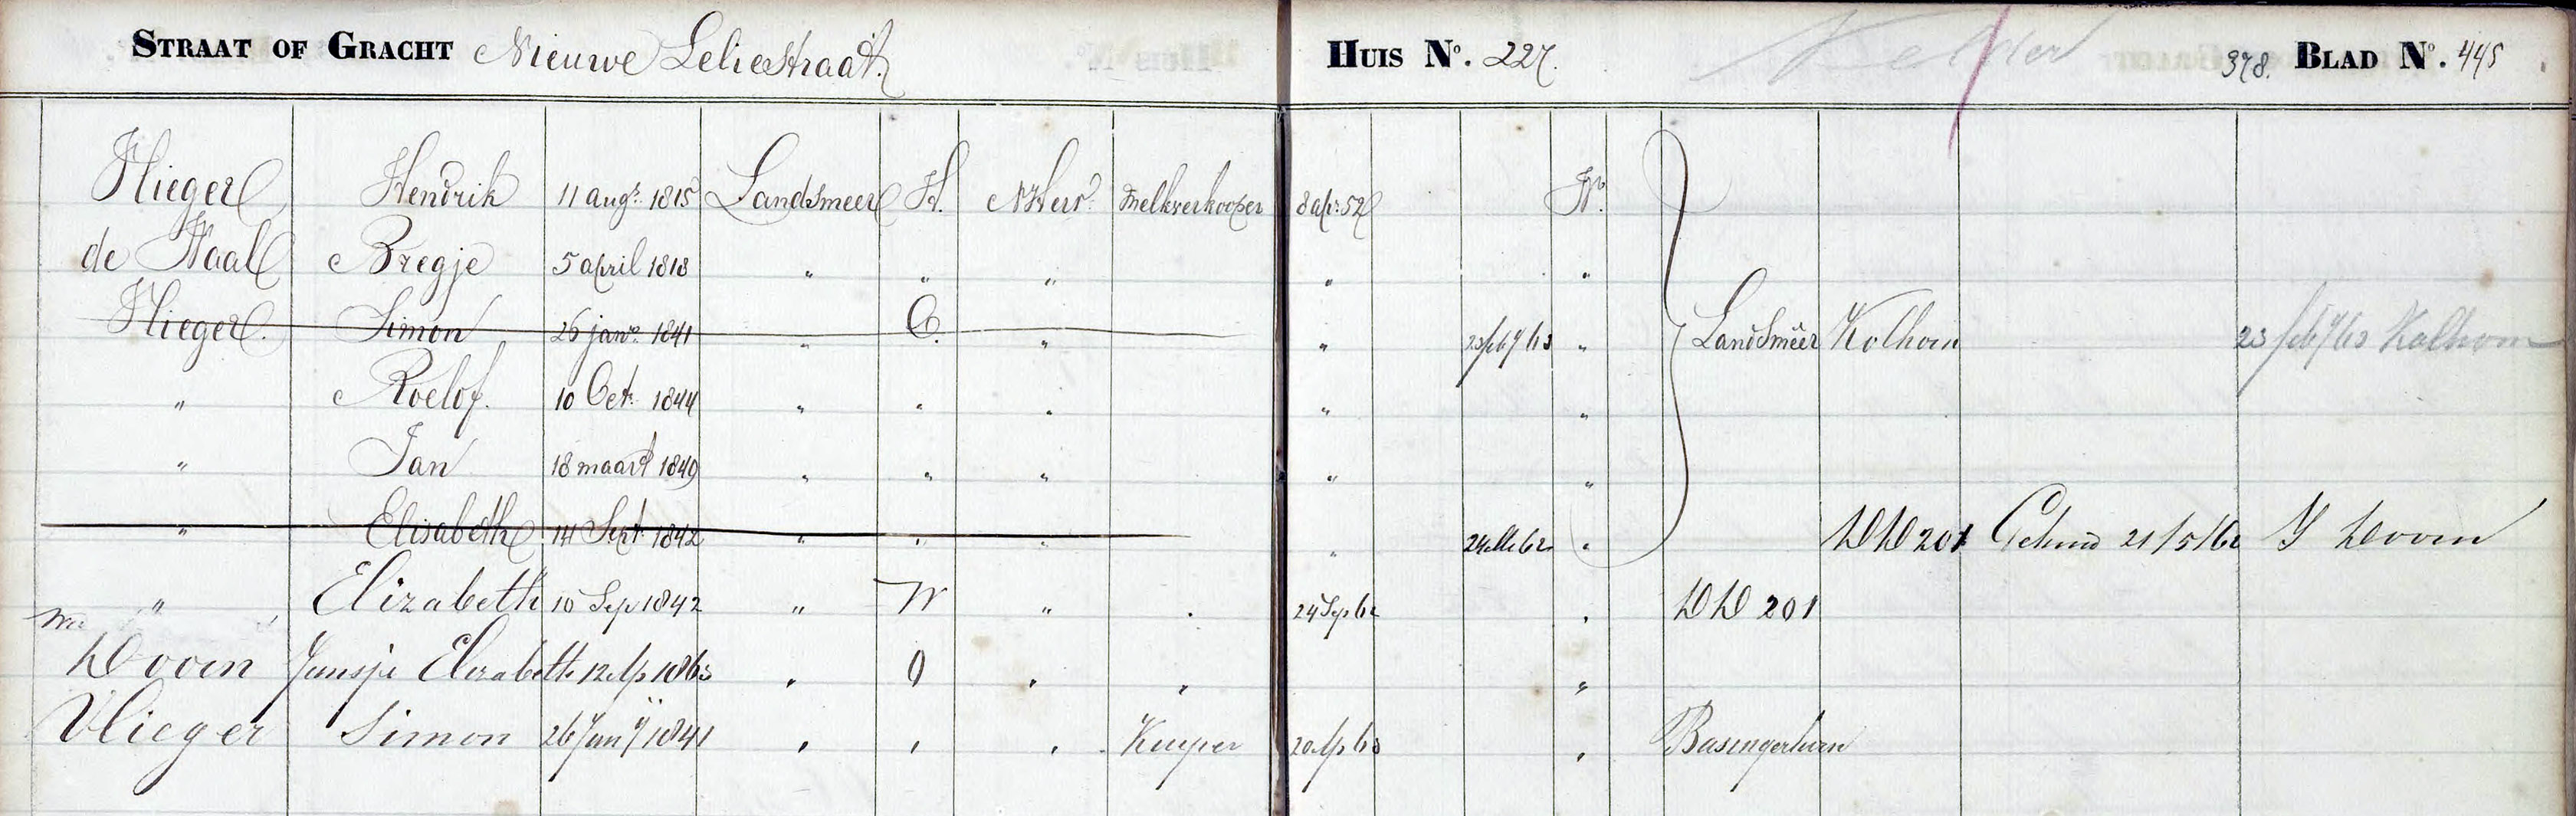 STRAAT OF GRACHT Nieuwe Leliestraat. HUIS No. 227. Kelder 378. BLAD No. 445
Vlieger Hendrik 11 augs. 1815 Landsmeer H. N Herv. melkverkooper 8 apr. 52 W.
de Waal Bregje 5 april 1818 " " " " "
Vlieger. Simon 26 janr. 1841 " O. " " 23 feby 63 " Landsmeer Kolhorn 23 feby 63 Kolhorn
" Roelof. 10 Oct. 1844 " " " " "
" Jan 18 maart 1849 " " " " "
" Elisabeth 14 Sept. 1842 " " " " 62 " DD 201 Gehuwd 21/5/62 Y Doorn
" Elizabeth 10 Sep 1842 " W " " 24 Sep 62 " DD 201
Doorn Jansje Elizabeth 12 Ap 1863 " O " " "
Vlieger Simon 26 Jany 1841 " " " Kuyper 20 Ap 63 " Barsingerhorn